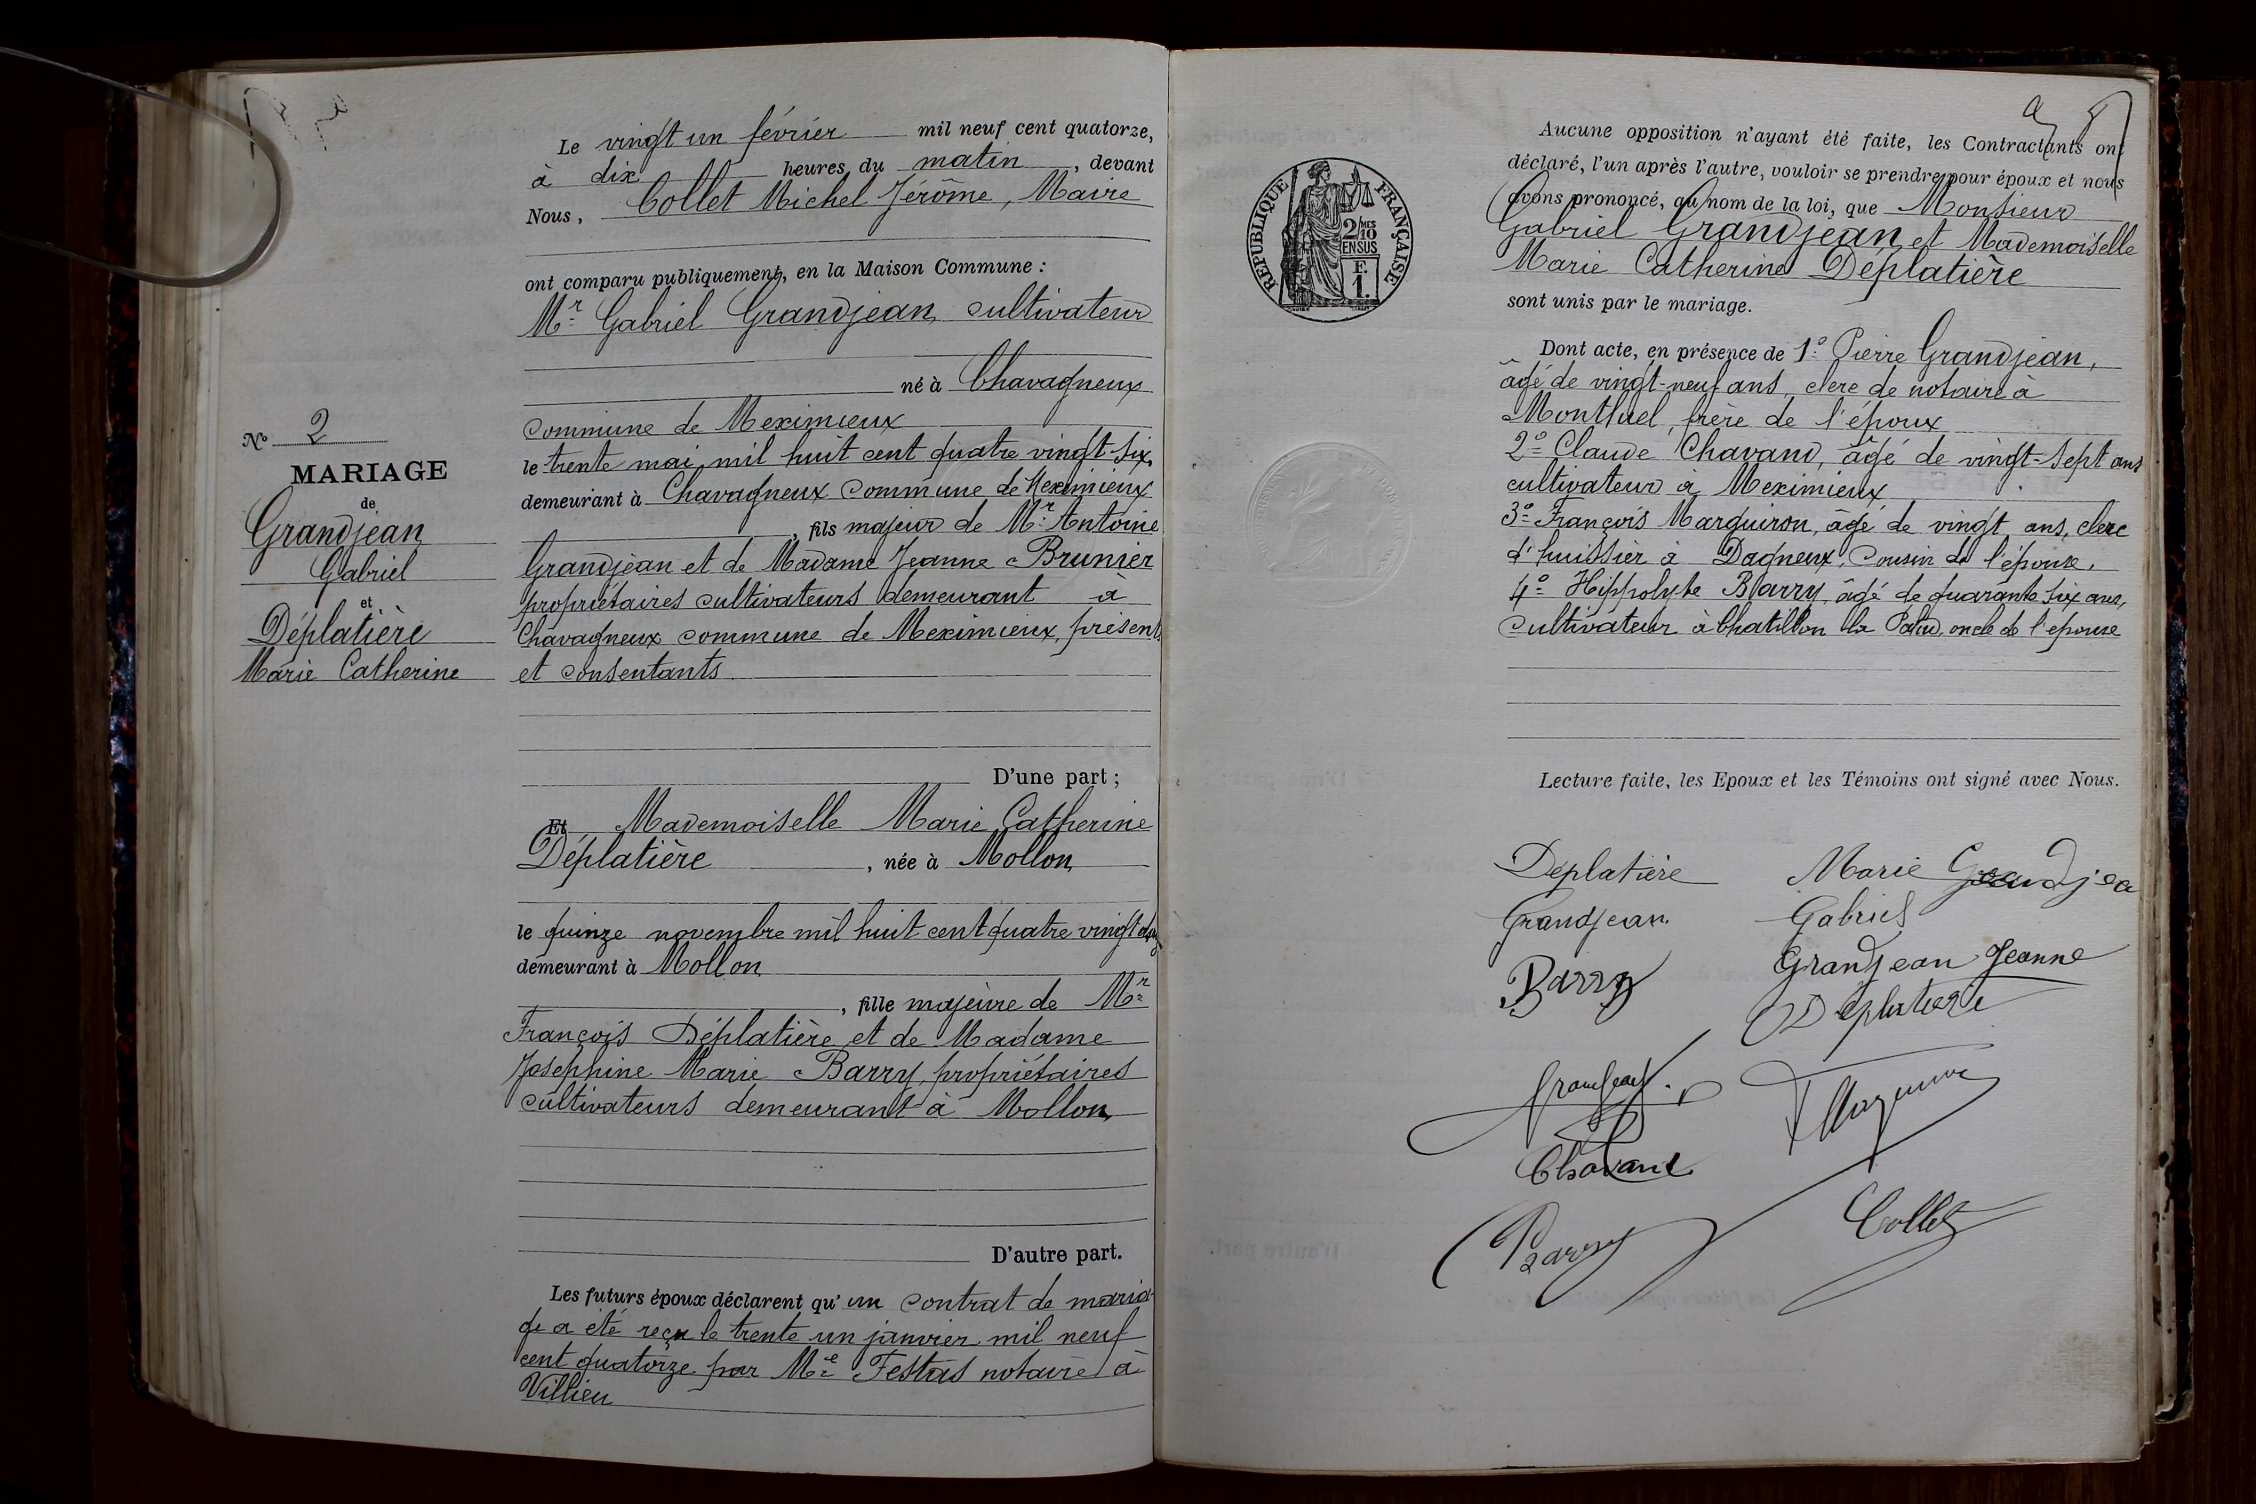 Le vingt un février mil neuf cent quatorze,
à dix heures du matin, devant
Nous, Collet Michel Jérôme, Maire
ont comparu publiquement, en la Maison Commune :
Mr Gabriel Grandjean cultivateur
né à Chavagneux
commune de Meximieux
le trente mai mil huit cent quatre vingt-six
demeurant à Chavagneux commune de Meximieux
, fils majeur de Mr Antoine
Grandjean et de Madame Jeanne Brunier
propriétaires cultivateurs demeurant à
Chavagneux commune de Meximieux, présents
et consentants
D'une part ;
No 2
MARIAGE
de
Grandjean
Gabriel
et
Déplatière
Marie Catherine
Et Mademoiselle Marie Catherine
Déplatière, née à Mollon
le quinze novembre mil huit cent quatre vingt
demeurant à Mollon
, fille majeure de Mr
François Déplatière et de Madame
Joséphine Marie Barry, propriétaires
cultivateurs demeurant à Mollon
D'autre part.
Les futurs époux déclarent qu'un contrat de maria-
ge a été reçu le trente un janvier mil neuf
cent quatorze par Me Festas notaire à
Villieu
RÉPUBLIQUE FRANÇAISE
2/10 MES
EN SUS
F.
1.
Aucune opposition n'ayant été faite, les Contractants ont
déclaré, l'un après l'autre, vouloir se prendre pour époux et nous
avons prononcé, au nom de la loi, que Monsieur
Gabriel Grandjean et Mademoiselle
Marie Catherine Déplatière
sont unis par le mariage.
Dont acte, en présence de 1º Pierre Grandjean,
âgé de vingt-neuf ans, clerc de notaire à
Montluel, frère de l'époux
2º Claude Chavand, âgé de vingt-sept ans
cultivateur à Meximieux
3º François Marguiron, âgé de vingt ans, clerc
d'huissier à Dagneux, cousin de l'épouse.
4º Hippolyte Barry, âgé de quarante six ans,
cultivateur à Chatillon la Palud, oncle de l'épouse
Lecture faite, les Epoux et les Témoins ont signé avec Nous.
Déplatière Marie Grandjea
Grandjean Gabriel
Barry Grandjean Jeanne
Déplatière
Grandjean
Chavand
Barry Collet